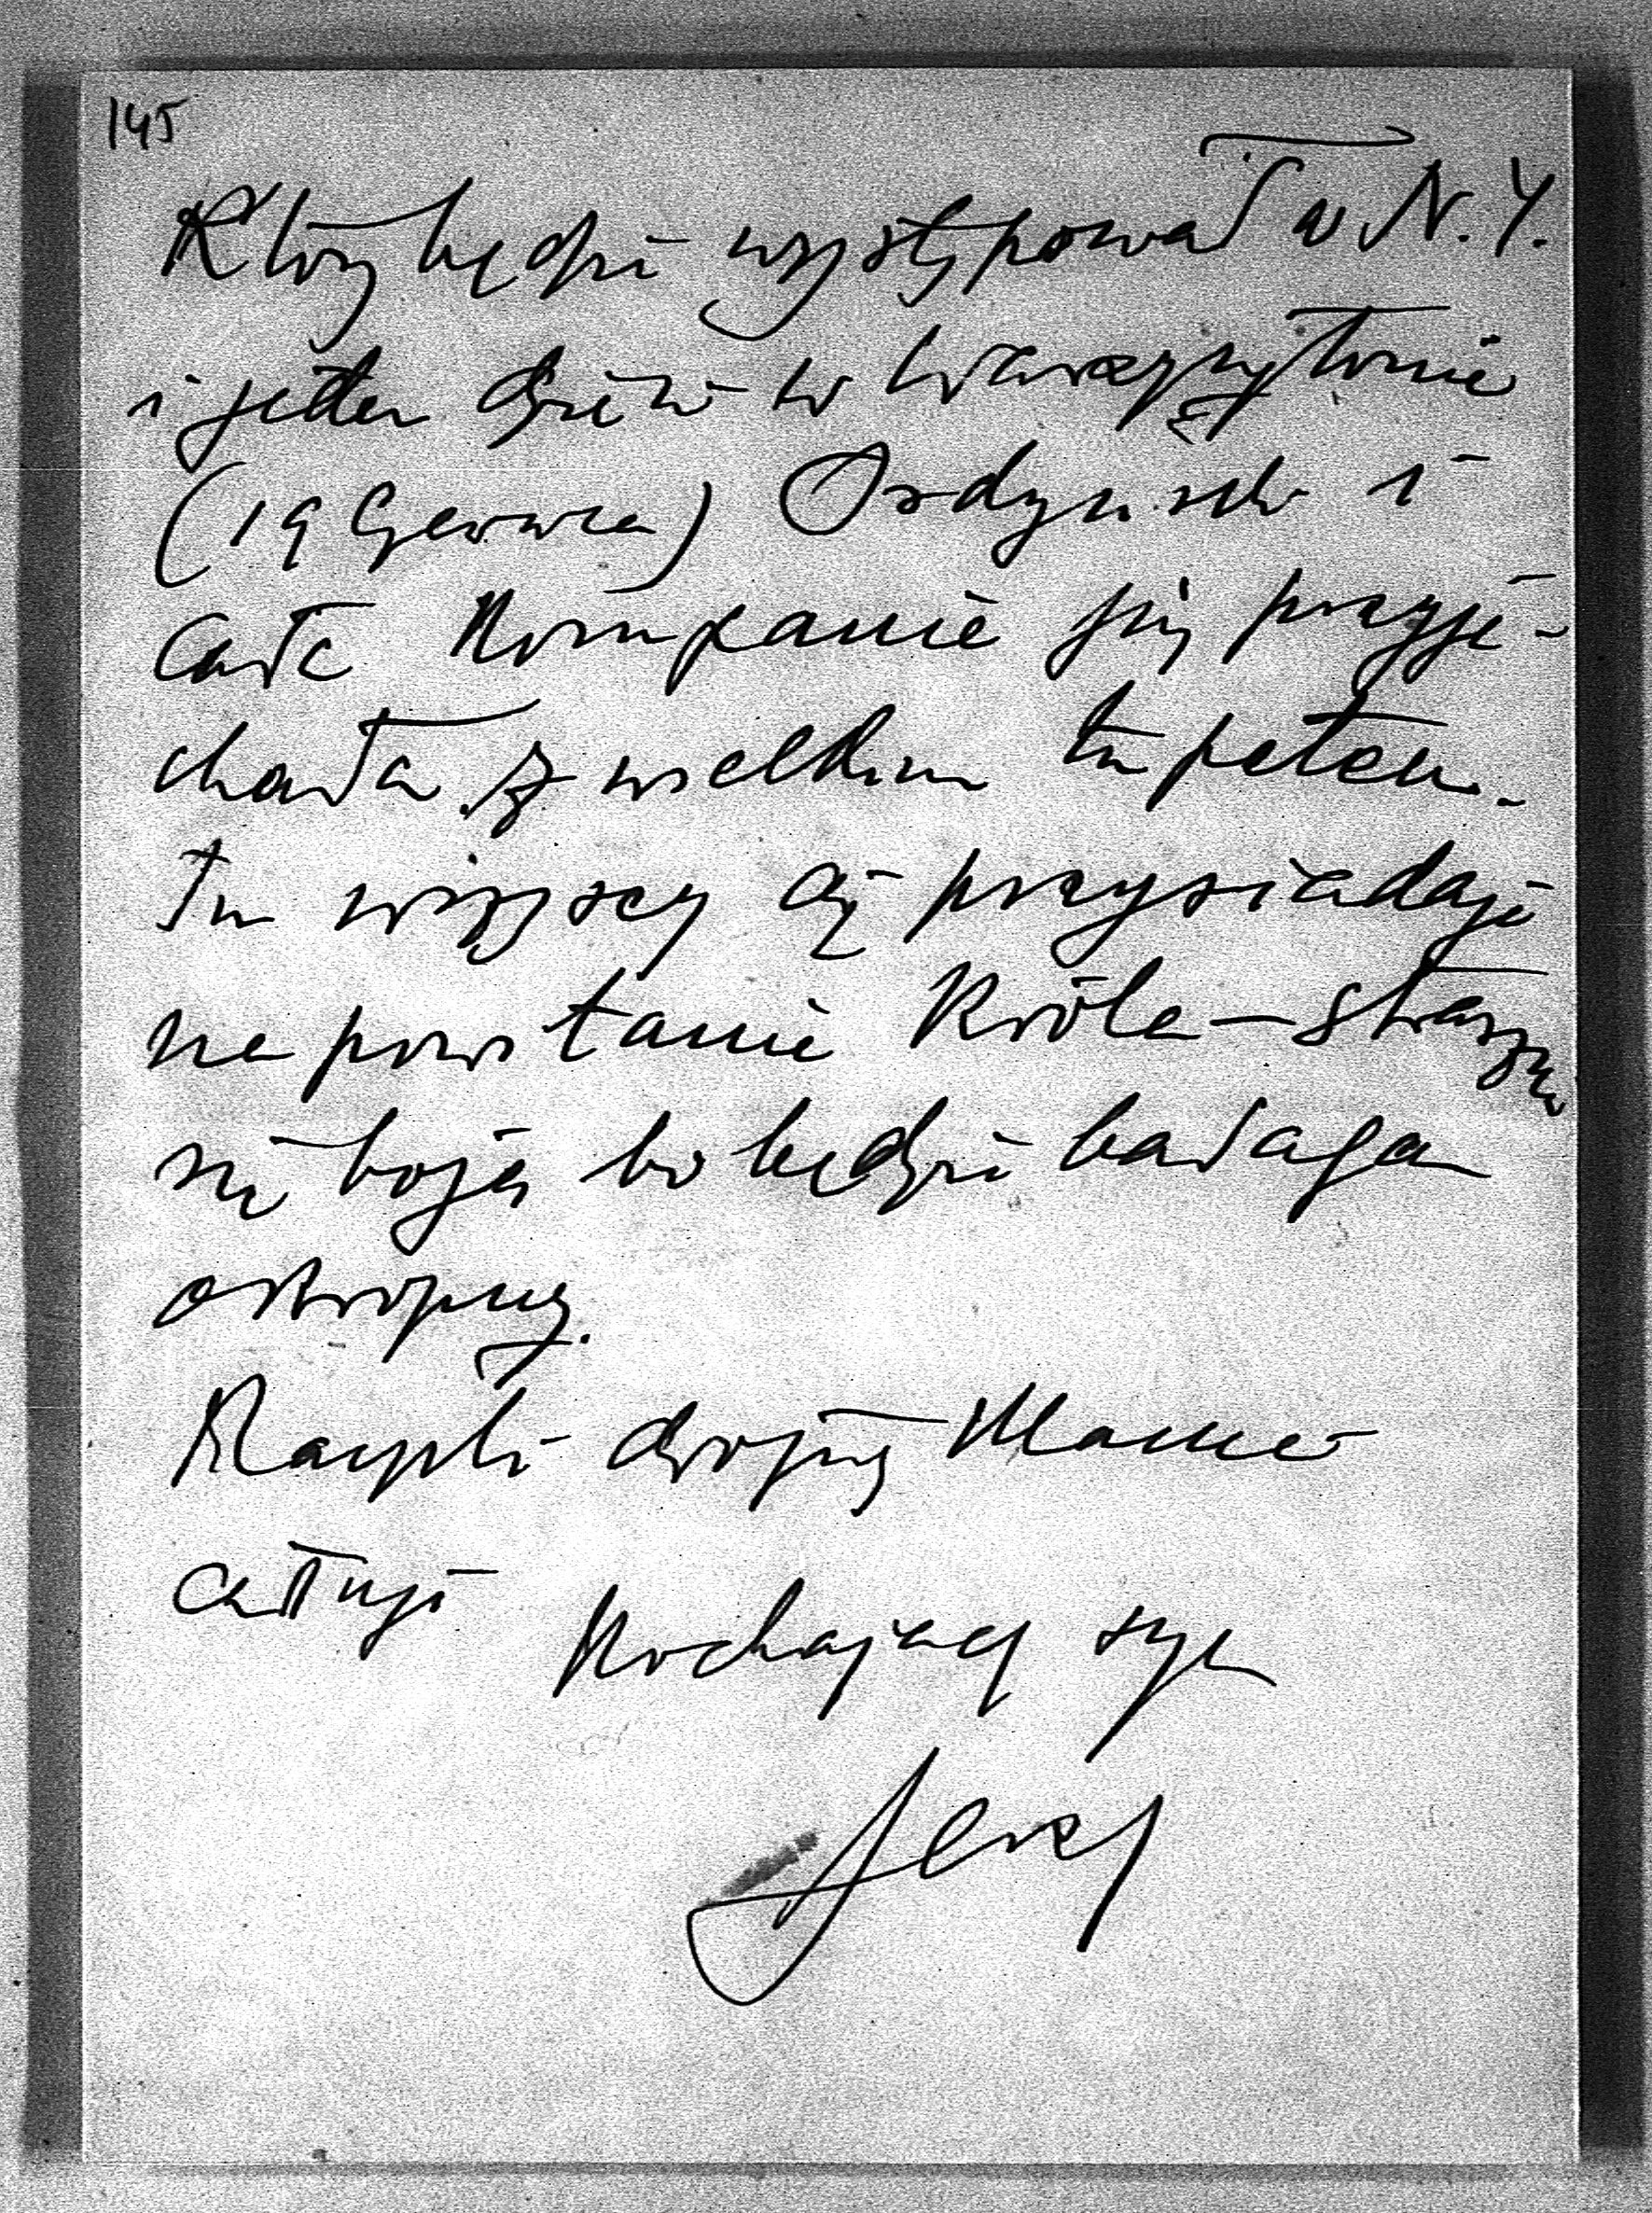 145
Który będzie występował w N.Y.
i jeden dzień w Waszyngtonie
(19 Czerwca) Ordyński i
cała Kompanie już przyje-
chała z wielkim tupetem.
Tu wszyscy się przysiadają
na powitanie Króla – straszn
się boję bo będzie bałagan
okropny.
Rączki drogiej Mamie
całuję
Kochający syn
Jerzy